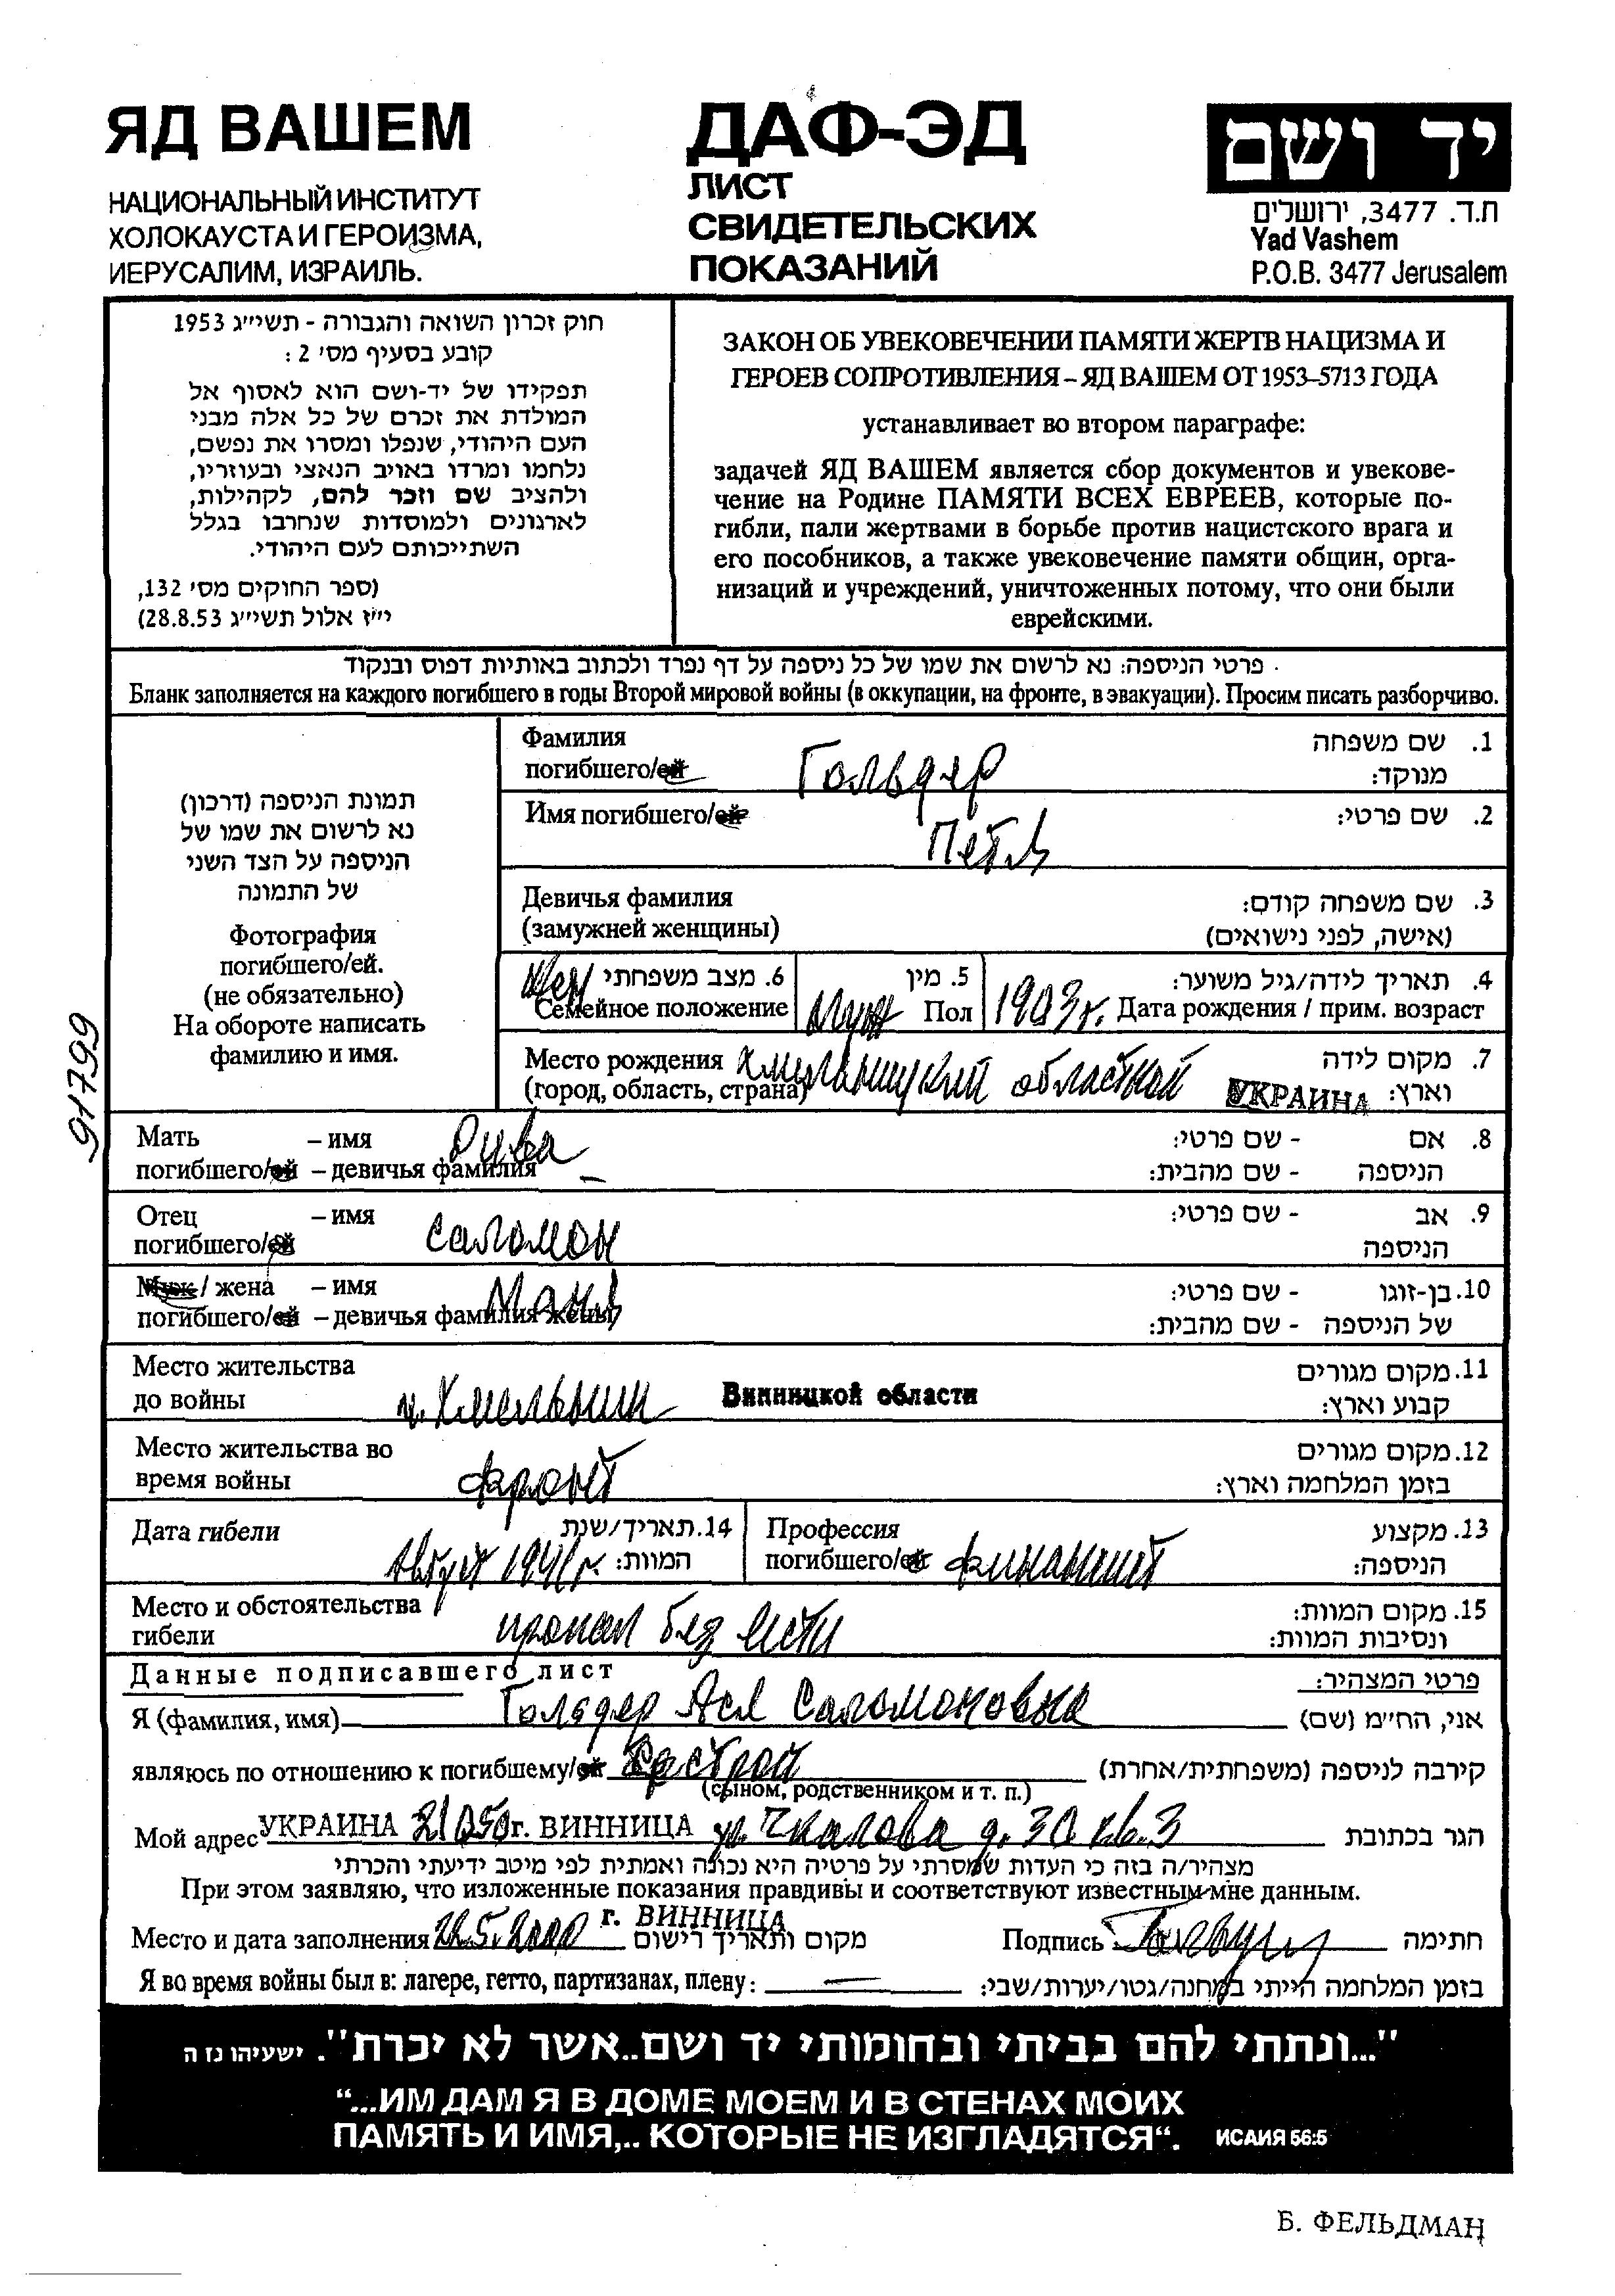 ЯД ВАШЕМ
НАЦИОНАЛЬНЫЙ ИНСТИТУТ
ХОЛОКАУСТА И ГЕРОИЗМА,
ИЕРУСАЛИМ, ИЗРАИЛЬ.
ДАФ-ЭД
ЛИСТ
СВИДЕТЕЛЬСКИХ
ПОКАЗАНИЙ
יד ושם
ת.ד. 3477, ירושלים
Yad Vashem
P.O.B. 3477 Jerusalem
חוק זכרון השואה והגבורה - תשי״ג 1953
קובע בסעיף מס׳ 2 :
תפקידו של יד-ושם הוא לאסוף אל
המולדת את זכרם של כל אלה מבני
העם היהודי, שנפלו ומסרו את נפשם,
נלחמו ומרדו באויב הנאצי ובעוזריו,
ולהציב שם וזכר להם, לקהילות,
לארגונים ולמוסדות שנחרבו בגלל
השתייכותם לעם היהודי.
(ספר החוקים מס׳ 132,
י״ז אלול תשי״ג 28.8.53)
ЗАКОН ОБ УВЕКОВЕЧЕНИИ ПАМЯТИ ЖЕРТВ НАЦИЗМА И
ГЕРОЕВ СОПРОТИВЛЕНИЯ – ЯД ВАШЕМ ОТ 1953–5713 ГОДА
устанавливает во втором параграфе:
задачей ЯД ВАШЕМ является сбор документов и увекове-
чение на Родине ПАМЯТИ ВСЕХ ЕВРЕЕВ, которые по-
гибли, пали жертвами в борьбе против нацистского врага и
его пособников, а также увековечение памяти общин, орга-
низаций и учреждений, уничтоженных потому, что они были
еврейскими.
פרטי הניספה: נא לרשום את שמו של כל ניספה על דף נפרד ולכתוב באותיות דפוס ובנקוד
Бланк заполняется на каждого погибшего в годы Второй мировой войны (в оккупации, на фронте, в эвакуации). Просим писать разборчиво.
תמונת הניספה (דרכון)
נא לרשום את שמו של
הניספה על הצד השני
של התמונה
Фотография
погибшего/ей.
(не обязательно)
На обороте написать
фамилию и имя.
91799
Фамилия
погибшего/ей Гольдер
1. שם משפחה
מנוקד:
Имя погибшего/ей Петя
2. שם פרטי:
Девичья фамилия
(замужней женщины)
3. שם משפחה קודם:
(אישה, לפני נישואים)
жен 6. מצב משפחתי
Семейное положение
5. מין
муж Пол
4. תאריך לידה/גיל משוער:
1903 г. Дата рождения / прим. возраст
Место рождения
(город, область, страна) Хмельницкий областной УКРАИНА
7. מקום לידה
וארץ:
Мать – имя Рива
погибшего/ей – девичья фамилия –
8. אם - שם פרטי:
הניספה - שם מהבית:
Отец – имя
погибшего/ей Саломон
9. אב - שם פרטי:
הניספה
Муж / жена – имя Маня
погибшего/ей – девичья фамилия жены
10. בן-זוגו - שם פרטי:
של הניספה - שם מהבית:
Место жительства
до войны м. Хмельник Винницкой области
11. מקום מגורים
קבוע וארץ:
Место жительства во
время войны фронт
12. מקום מגורים
בזמן המלחמה וארץ:
Дата гибели 14. תאריך/שנת
август 1941 г. המוות:
Профессия
погибшего/ей финансист
13. מקצוע
הניספה:
Место и обстоятельства
гибели пропал без вести
15. מקום המוות:
ונסיבות המוות:
Данные подписавшего лист
פרטי המצהיר:
Я (фамилия, имя) Гольдер Ася Саломоновна אני, הח״מ (שם)
являюсь по отношению к погибшему/ей сестрой קירבה לניספה (משפחתית/אחרת)
(сыном, родственником и т. п.)
Мой адрес УКРАИНА 21050 г. ВИННИЦА ул. Чкалова д. 30 кв. 3 הגר בכתובת
מצהיר/ה בזה כי העדות שמסרתי על פרטיה היא נכונה ואמתית לפי מיטב ידיעתי והכרתי
При этом заявляю, что изложенные показания правдивы и соответствуют известным мне данным.
г. ВИННИЦА
Место и дата заполнения 22.5.2000 מקום ותאריך רישום Подпись חתימה
Я во время войны был в: лагере, гетто, партизанах, плену: — בזמן המלחמה הייתי במחנה/גטו/יערות/שבי:
"...ונתתי להם בביתי ובחומותי יד ושם..אשר לא יכרת". ישעיהו נז ה
“...ИМ ДАМ Я В ДОМЕ МОЕМ И В СТЕНАХ МОИХ
ПАМЯТЬ И ИМЯ,.. КОТОРЫЕ НЕ ИЗГЛАДЯТСЯ“. ИСАИЯ 56:5
Б. ФЕЛЬДМАН